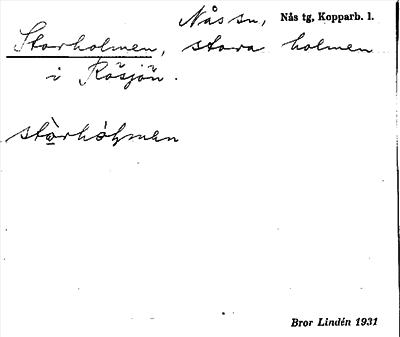 Nås sn, Nås tg, Kopparb. l.
Storholmen, stora holmen
i Råsjön.
stòrhòļmen
Bror Lindén 1931